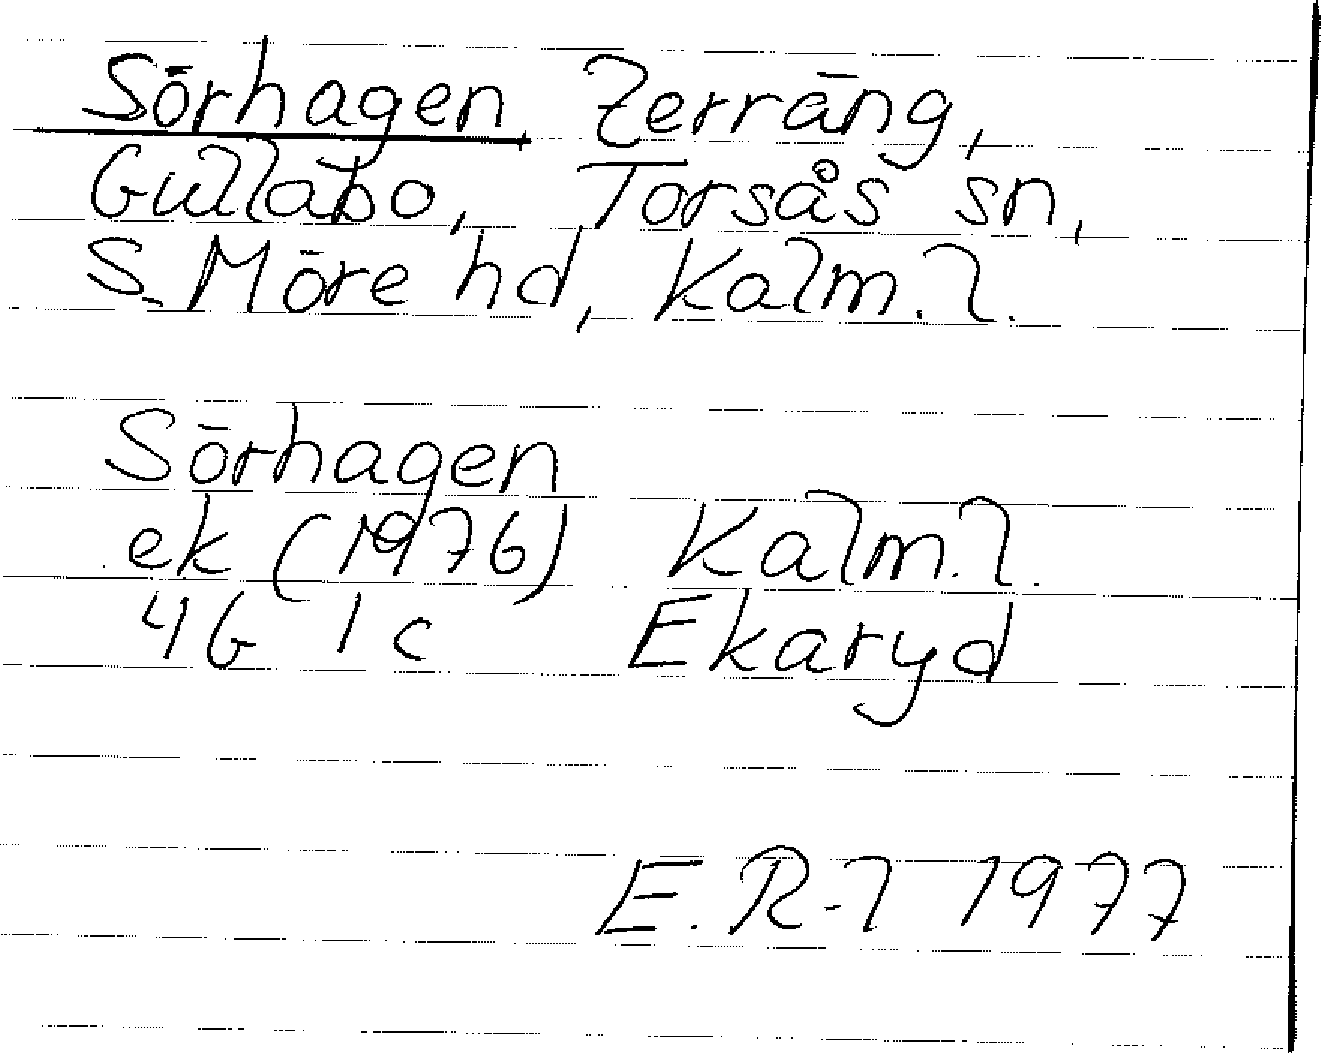 Sörhagen, Terräng,
Gullabo, Torsås sn,
S. Möre hd, Kalm. l.
Sörhagen
ek (1976) Kalm. l.
4G 1c Ekaryd
E. R-l 1977